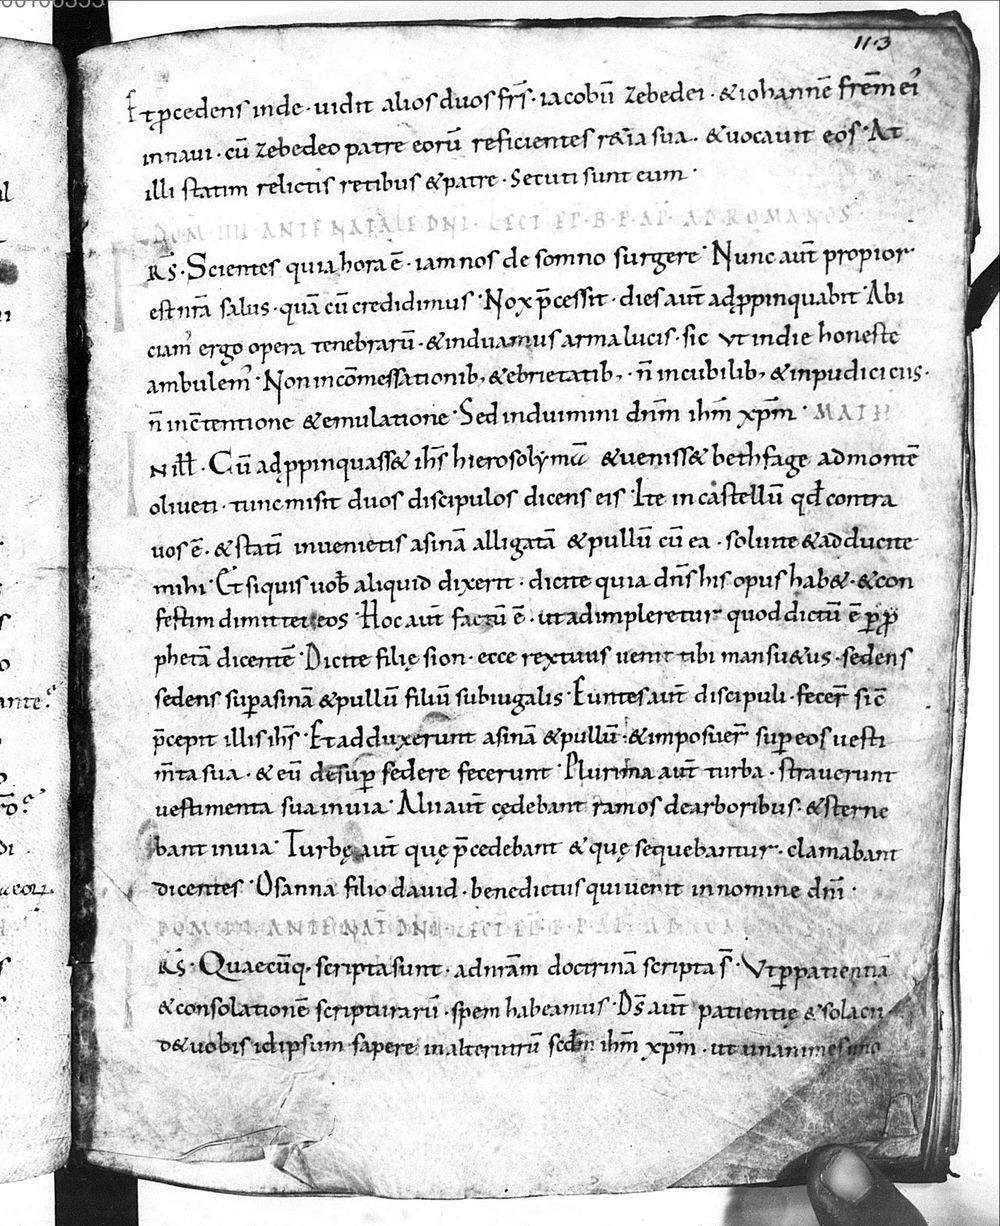 113
Et p̄cedens inde · uidit alios duos fr̄s · iacobū zebedei · & iohannē frēm ei᾽
in naui · cū zebedeo patre eorū reficientes r&ia sua · & uocauit eos · At
illi statim relictis retibus & patre · Secuti sunt eum ·
DOM IIII ANTE NATALE DN̄I · LECT EP̄ · B · P · AP̄ · AD ROMANOS
R̄S · Scientes quia hora ē · iam nos de somno surgere · Nunc aūt propior
est nr̄a salus · quā cū credidimus · Nox p̄cessit · dies aūt adp̱pinquabit · Abi
ciam᾽ ergo opera tenebrarū · & induamus arma lucis · sic ut in die honeste
ambulem᾽ · Non in cōmessationib; & ebrietatib; · n̄ in cubilib; & inpudiciciis ·
n̄ in c̄tentione & emulatione · Sed induimini dn̄m ih̄m xp̄m · MATH
N ill̄ · Cū adp̱pinquass& ih̄s hierosolymā & ueniss& bethfage ad montē
oliueti · tunc misit duos discipulos dicens eis · Ite in castellū qd̄ contra
uos ē · & statī inuenietis asinā alligatā & pullū cū ea · soluite & adducite
mihi · Et si quis uob̄ aliquid dixerit · dicite quia dn̄s his opus hab& · & con
festim dimittet eos · Hoc aūt factū ē · ut adimpleretur quod dictū ē p̱ p̱
phetā dicentē · Dicite filię sion · ecce rex tuus uenit tibi mansu&us · sedens
sedens sup̱ asinā & pullū filiū subiugalis · Euntes aūt discipuli · fecer̄ sic̄
p̄cepit illis ih̄s · Et adduxerunt asinā & pullū · & imposuer̄ sup̱ eos uesti
m̄ta sua · & eū desup̱ sedere fecerunt · Plurima aūt turba · strauerunt
uestimenta sua in uia · Alii aūt cędebant ramos de arboribus · & sterne
bant in uia · Turbę aūt quę p̄cedebant & quę sequebantur · clamabant
dicentes · Osanna filio dauid · benedictus qui uenit in nomine dn̄i ·
DOM III ANTE NAT̄ DN̄I · LECT EP̄ · B · P · AP̄ · AD
R̄S · Quaecūq · scripta sunt · ad nr̄am doctrinā scripta s̄ · Vt p̱ patientiā
& consolationē scripturarū · spem habeamus · D̄s aūt patientię & solacii ·
d& uobis idipsum sapere in alterutrū scd̄m ih̄m xp̄m · ut unanimes uno